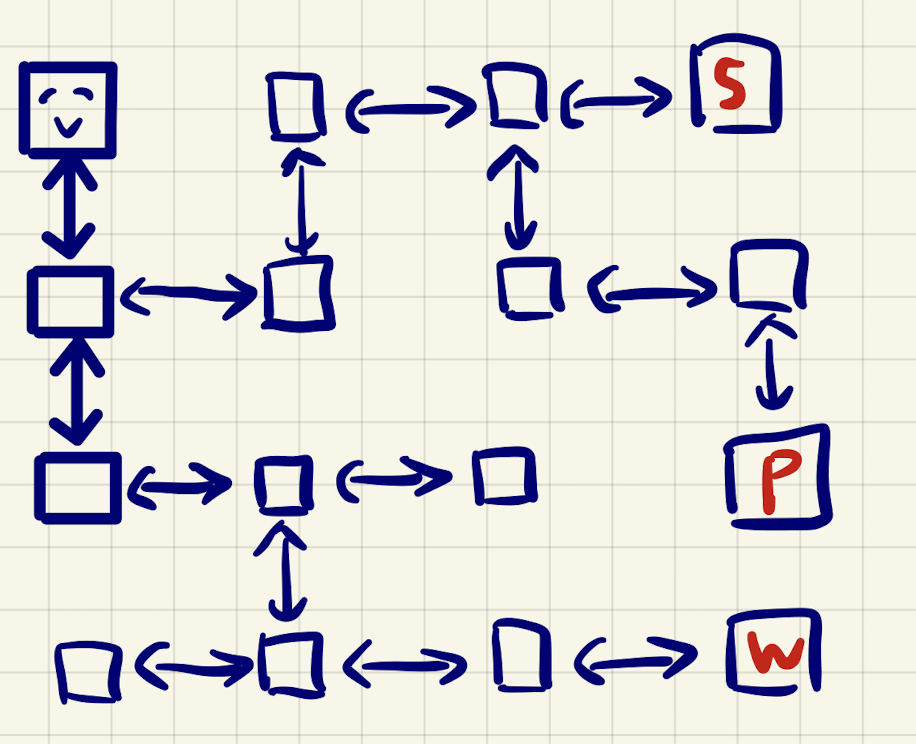 S
P
W